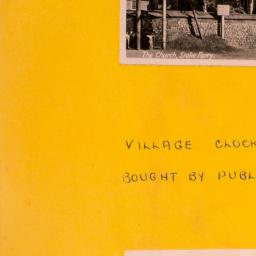 The Church, Stoke Ferry.
VILLAGE CLOCK
BOUGHT BY PUBL